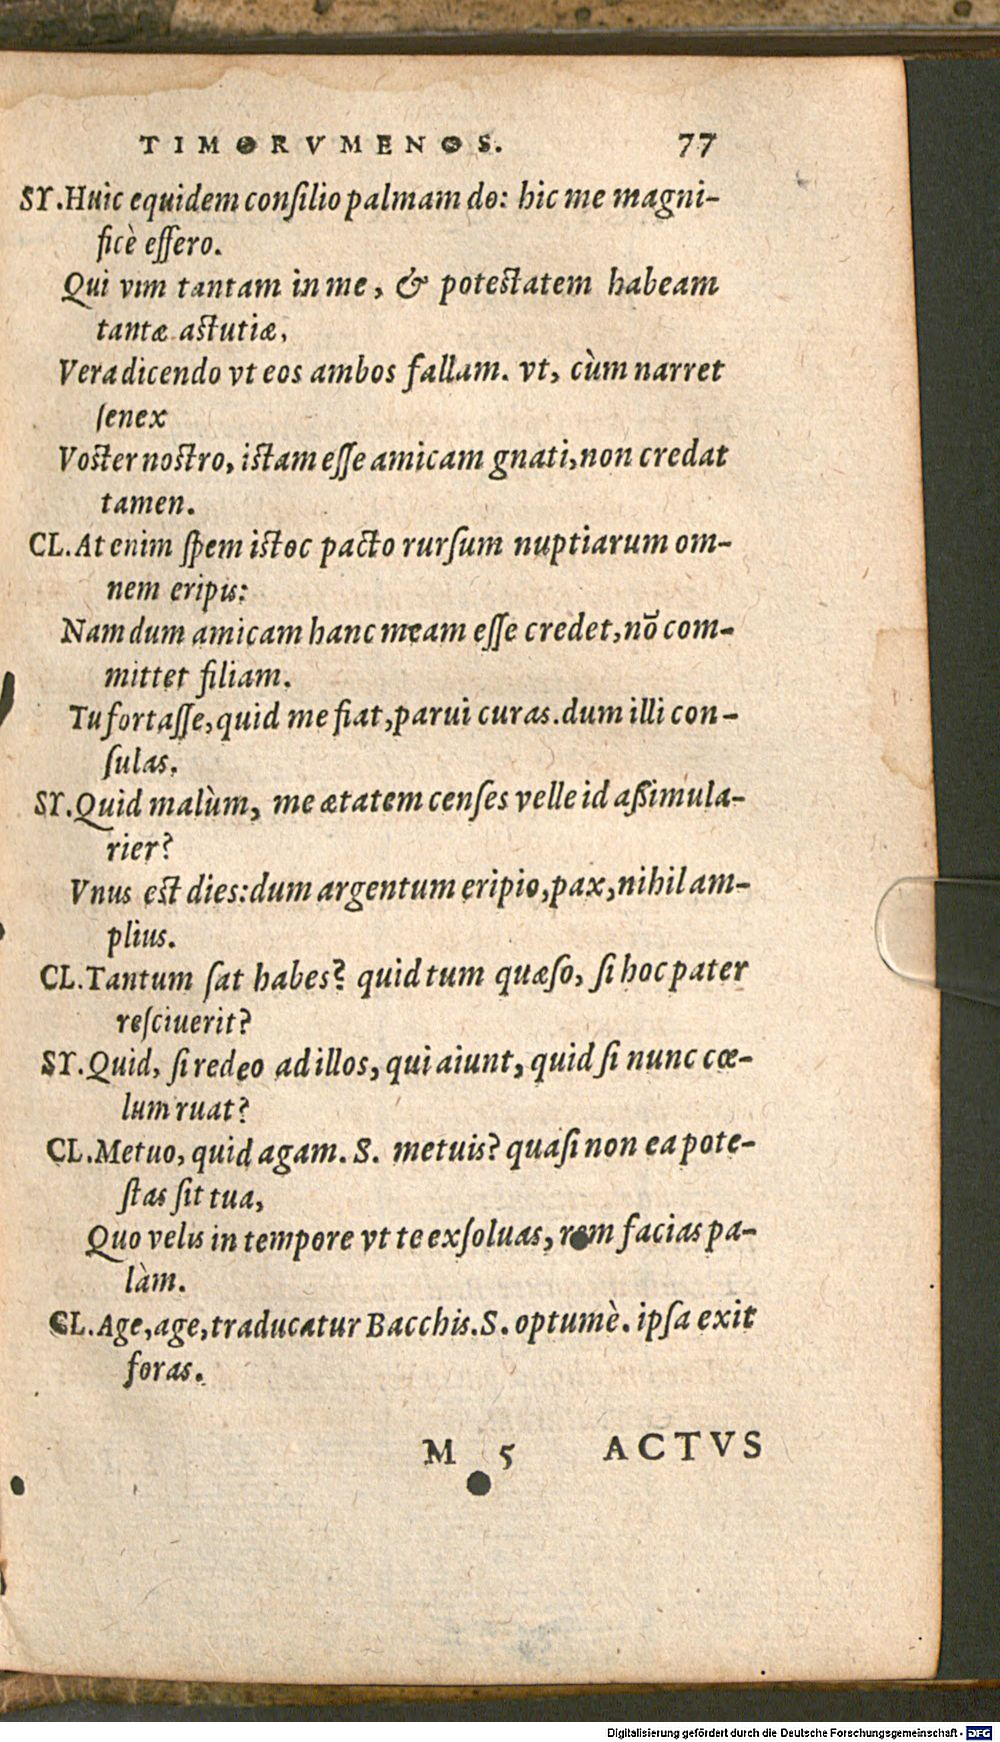 TIMORVMENOS. 77
SY.Huic equidem conſilio palmam do: hic me magni-
ficè eſſero.
Qui vim tantam in me, & poteſtatem habeam
tantæ aſtutiæ,
Vera dicendo vt eos ambos fallam. vt, cùm narret
ſenex
Voſter noſtro, iſtam eſſe amicam gnati, non credat
tamen.
CL.At enim ſpem iſtoc pacto rurſum nuptiarum om-
nem eripis:
Nam dum amicam hanc meam eſſe credet, nõ com-
mittet filiam.
Tu fortaſſe, quid me fiat, parui curas. dum illi con-
ſulas.
SY.Quid malùm, me ætatem cenſes velle id aßimula-
rier?
Vnus eſt dies: dum argentum eripio, pax, nihil am-
plius.
CL.Tantum ſat habes? quid tum quæſo, ſi hoc pater
reſciuerit?
SY.Quid, ſi redeo ad illos, qui aiunt, quid ſi nunc cœ-
lum ruat?
CL.Metuo, quid agam. S. metuis? quaſi non ea pote-
ſtas ſit tua,
Quo velis in tempore vt te exſoluas, rem facias pa-
làm.
CL.Age, age, traducatur Bacchis. S. optumè. ipſa exit
foras.
M 5 ACTVS
Digitalisierung gefördert durch die Deutsche Forschungsgemeinschaft - DFG